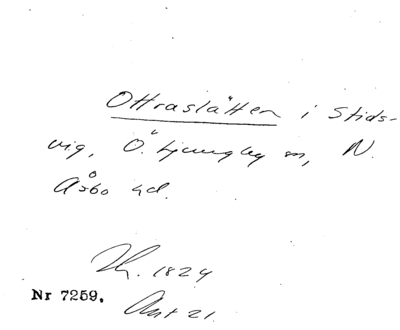 Ottraslätten i Stids-
vig, Ö. Ljungby sn, N.
Åsbo hd.
1824
Nr 7259. Ant 21.